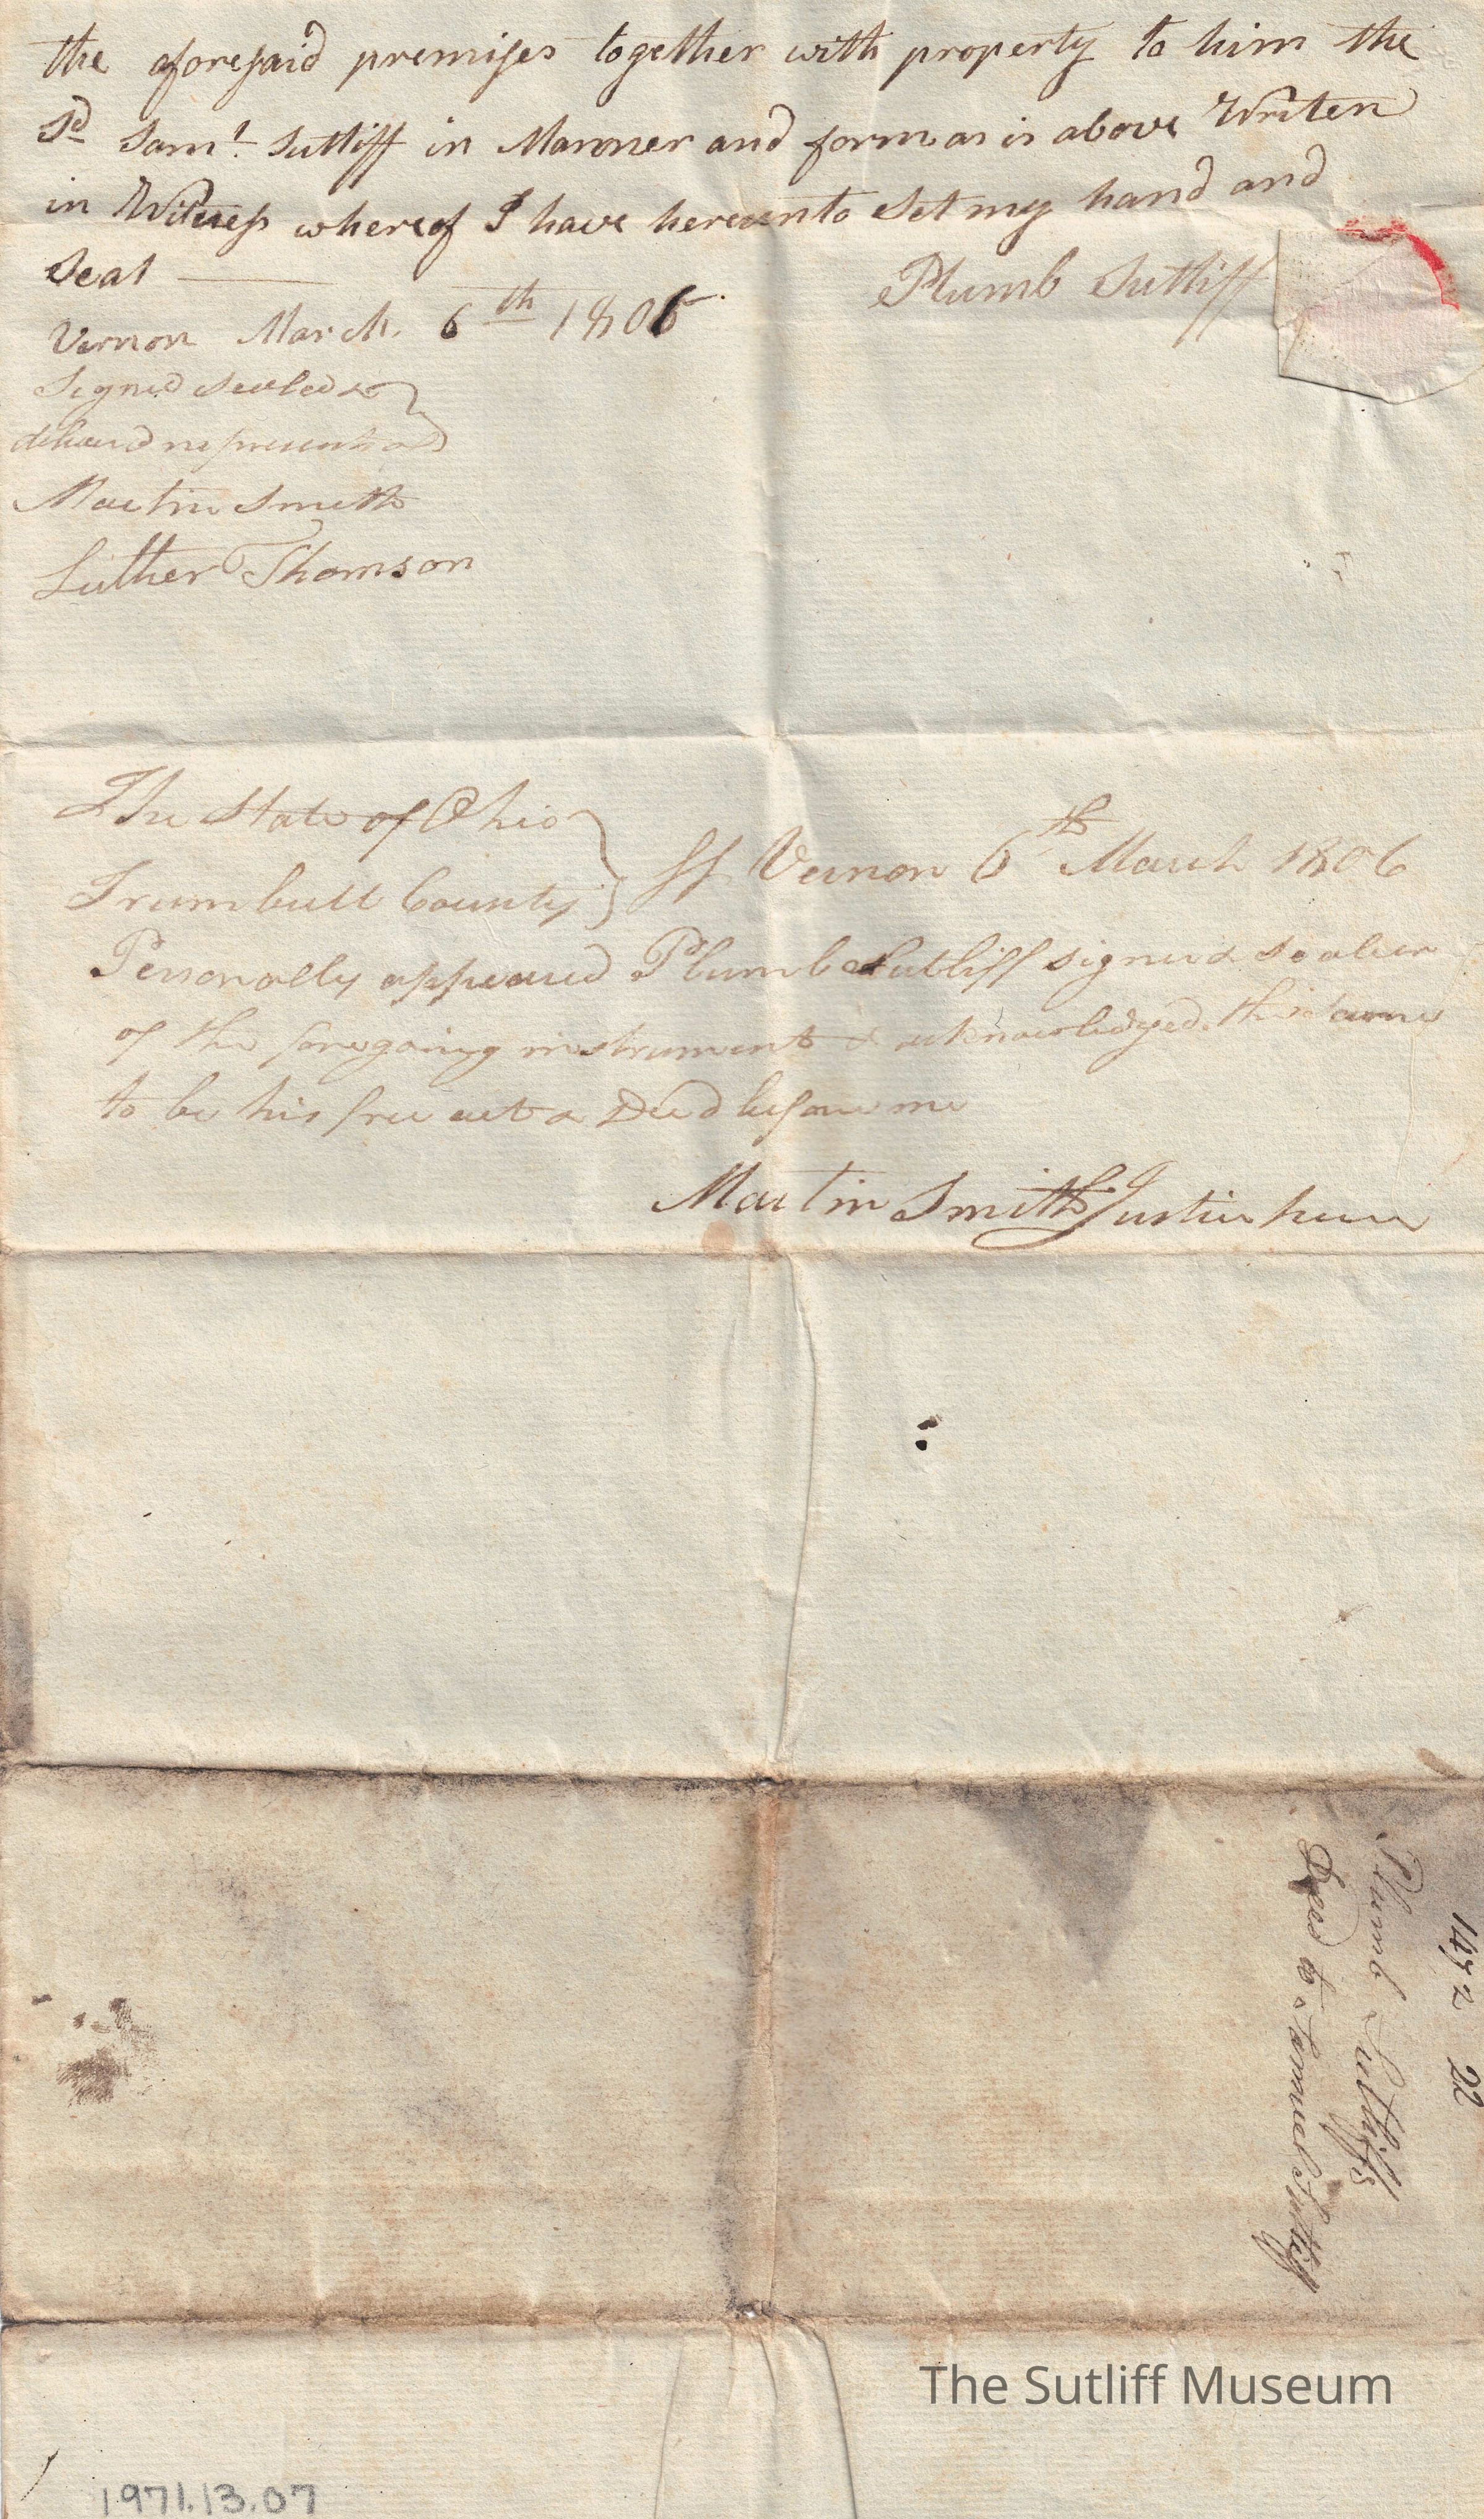 the aforesaid premises together with property to him the
sd Saml. Sutliff in Manner and form as is above Writen
in Witness whereof I have hereunto Set my hand and
Seal
Plumb Sutliff
Vernon March 6th 1806
Signed Sealed &
deliverd in presence of
Martin Smith
Luther Thomson
The State of Ohio
Trumbull County } SS Vernon 6th March 1806
Personally appeared Plumb Sutliff signer & sealer
of the foregoing instrument & acknowledged the same
to be his free act & Deed before me
Martin Smith Justice peace
22
Plumb Sutliffs
Deed to Samuel Sutliff
The Sutliff Museum
1971.13.07